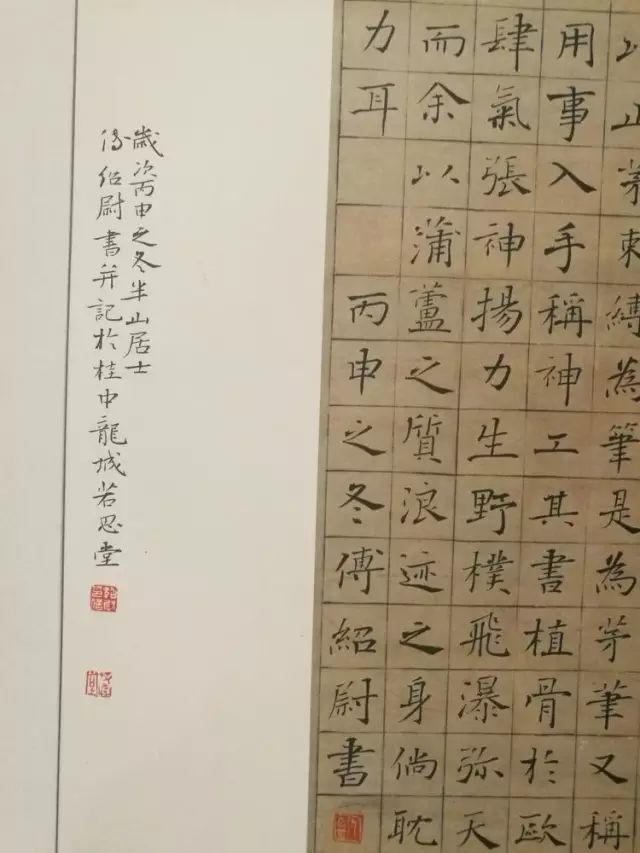 茅束縛為筆是為茅筆又稱
用事入手稱神工其書植骨於歐
肆氣張神揚力生野樸飛瀑弥天
而余以蒲蘆之質浪迹之身倘耽
力耳 丙申之冬傅紹尉書
歲次丙申之冬半山居士
傅绍尉書并記於桂中龍城若思堂